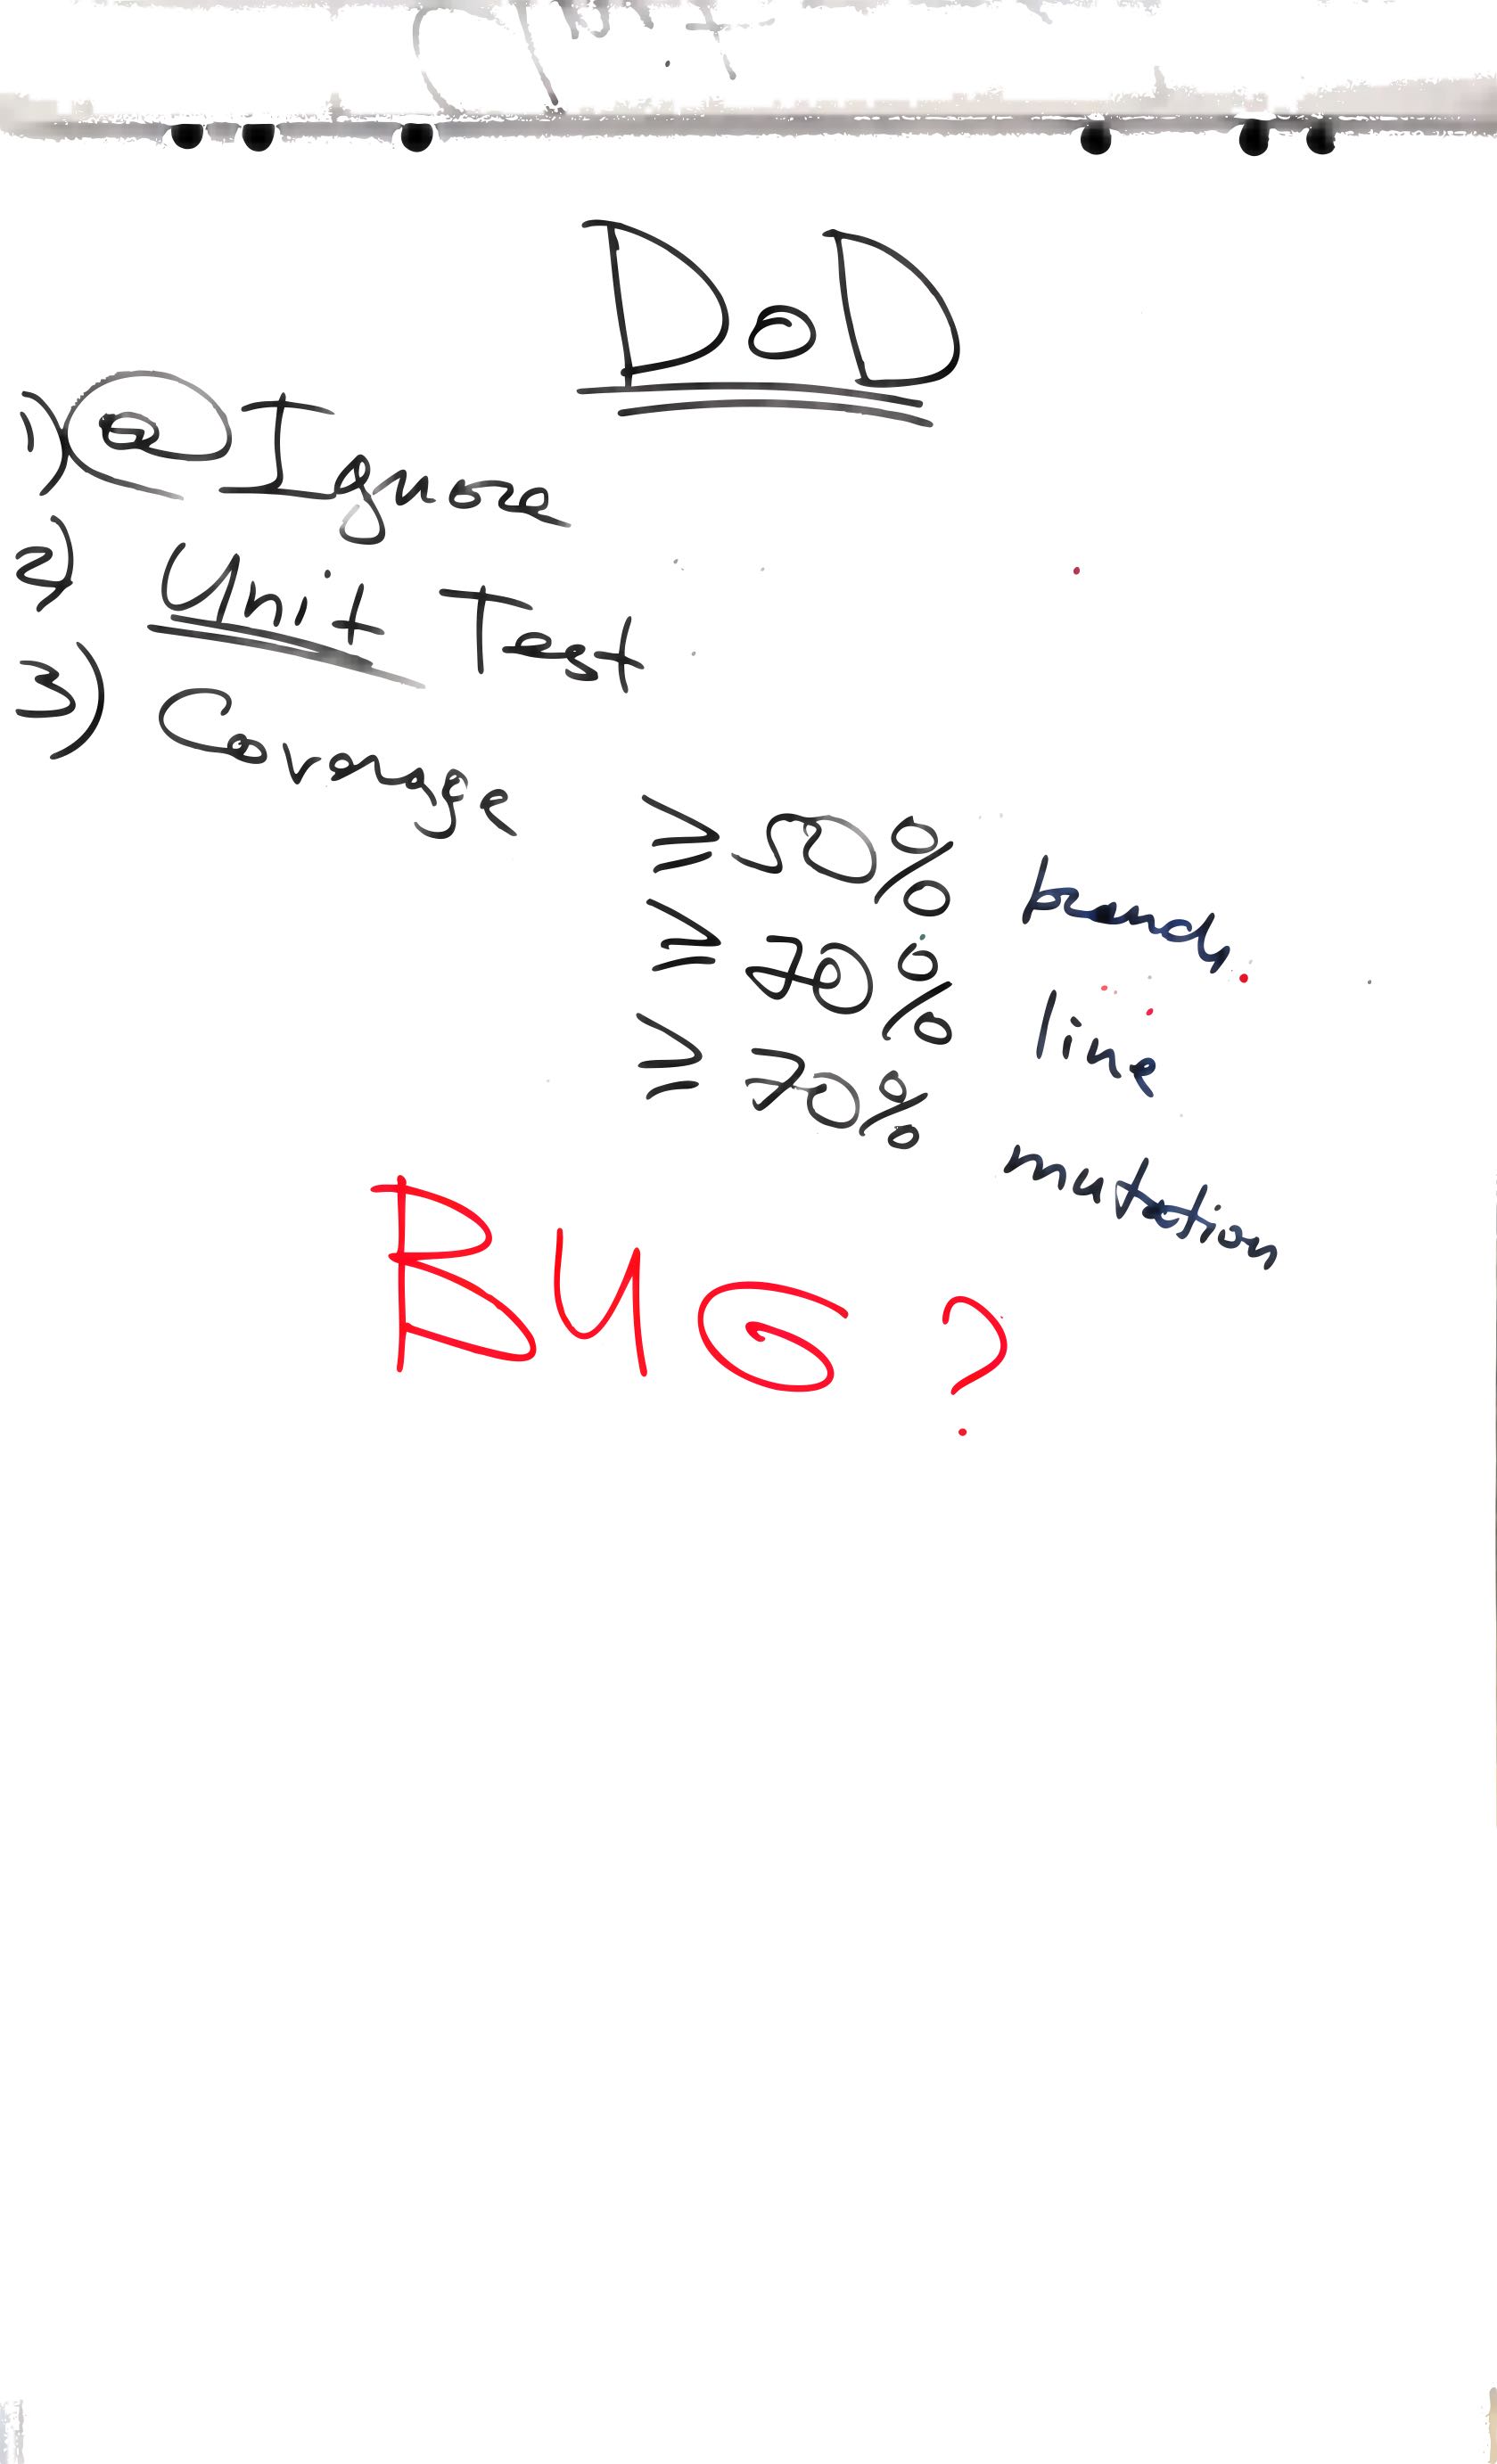 DoD
1) @Ignore
2) Unit Test
3) Coverage
≥ 50% branch
≥ 70% line
≥ 70% mutation
BUG?